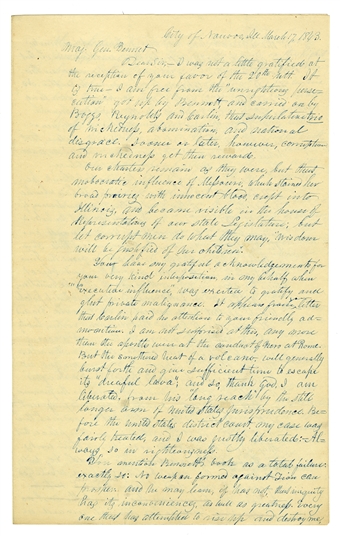 City of Nauvoo, Ill. March 17, 1843.
Maj. Gen. Bennet
Dear Sir,—I was not a little gratified at
the reception of your favor of the 20th ult. It
is true—I am free from the
got up by Bennett, and carried on by
Boggs, Reynolds and Carlin, that
of wickedness, abomination, and national
disgrace. Sooner or later, however, corruption
and wickedness get their rewards.
Our charters remain as they were, but that
mobocratic influence of Missouri, which stained her
broad prairies with innocent blood, crept into
Illinois, and became visible in the house of
Representatives of our State Legislature; but
let corrupt men do what they may, wisdom
will be justified of her children.
You have my grateful acknowledgement for
your very kind interposition in my behalf when
"executive influence" was exerted to gratify and
glut private malignance. It appears from letter
that Carlin paid no attention to your friendly ad-
monition. I am not surprised at this, any more
than the apostles were at the conduct of Nero at Rome.
But the smothered heat of a volcano, will generally
burst forth and give sufficient time to escape
its dreadful lava; and so, thank God, I am
liberated from his long reach by the still
longer arm of United States Jurisprudence. Be-
fore the United States district court my case was
fairly treated, and I was justly liberated. Al-
ways so in righteousness.
You mention Bennett's book as a total failure:
exactly so: No weapon formed against Zion can
prosper, and he may learn, if he has not, that iniquity
has its inconveniences, as well as greatness. Every
one that has attempted to and destroy me,